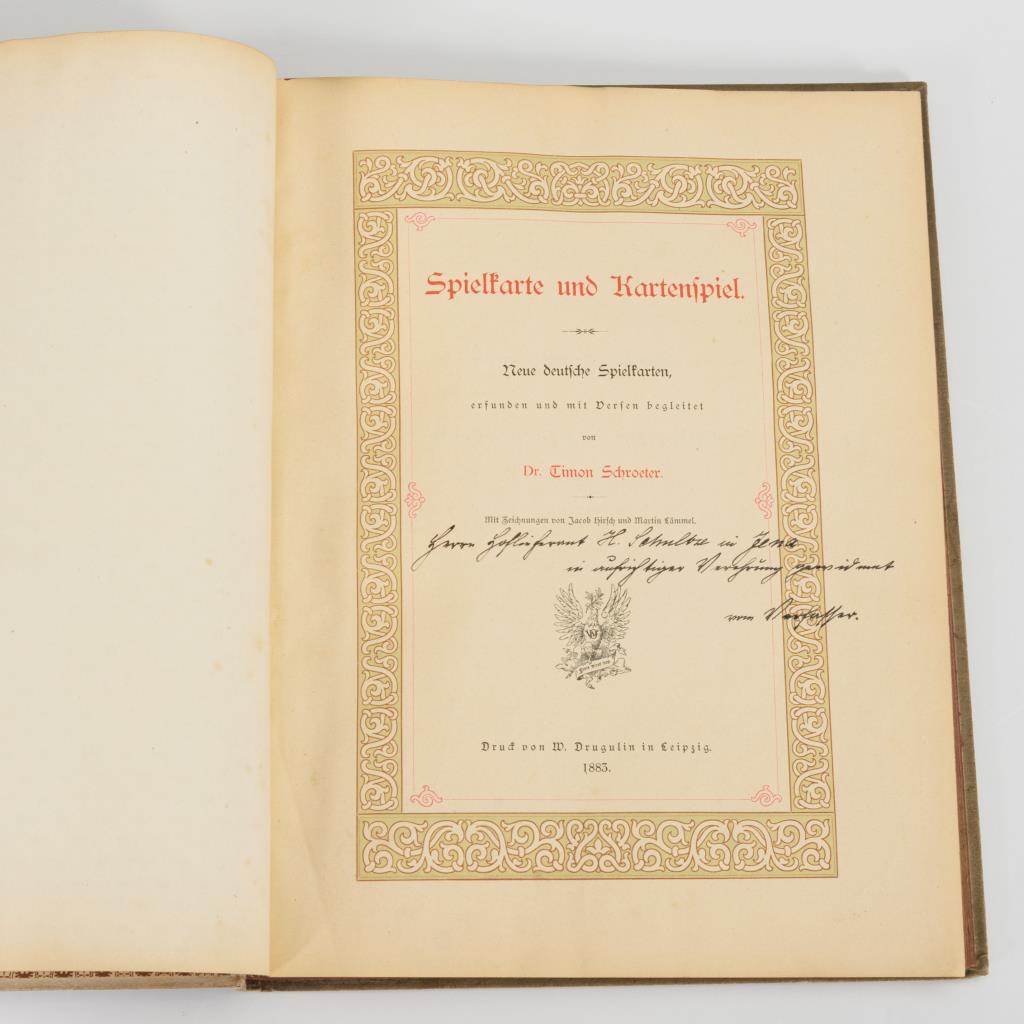 Spielkarte und Kartenſpiel.
Neue deutſche Spielkarten,
erfunden und mit Verſen begleitet
von
Dr. Timon Schroeter.
Mit Zeichnungen von Jacob Hirſch und Martin Lämmel.
Herrn Hoflieferant H. Schultze in Jena
in aufrichtiger Verehrung gewidmet
vom Verfasser.
Druck von W. Drugulin in Leipzig.
1883.